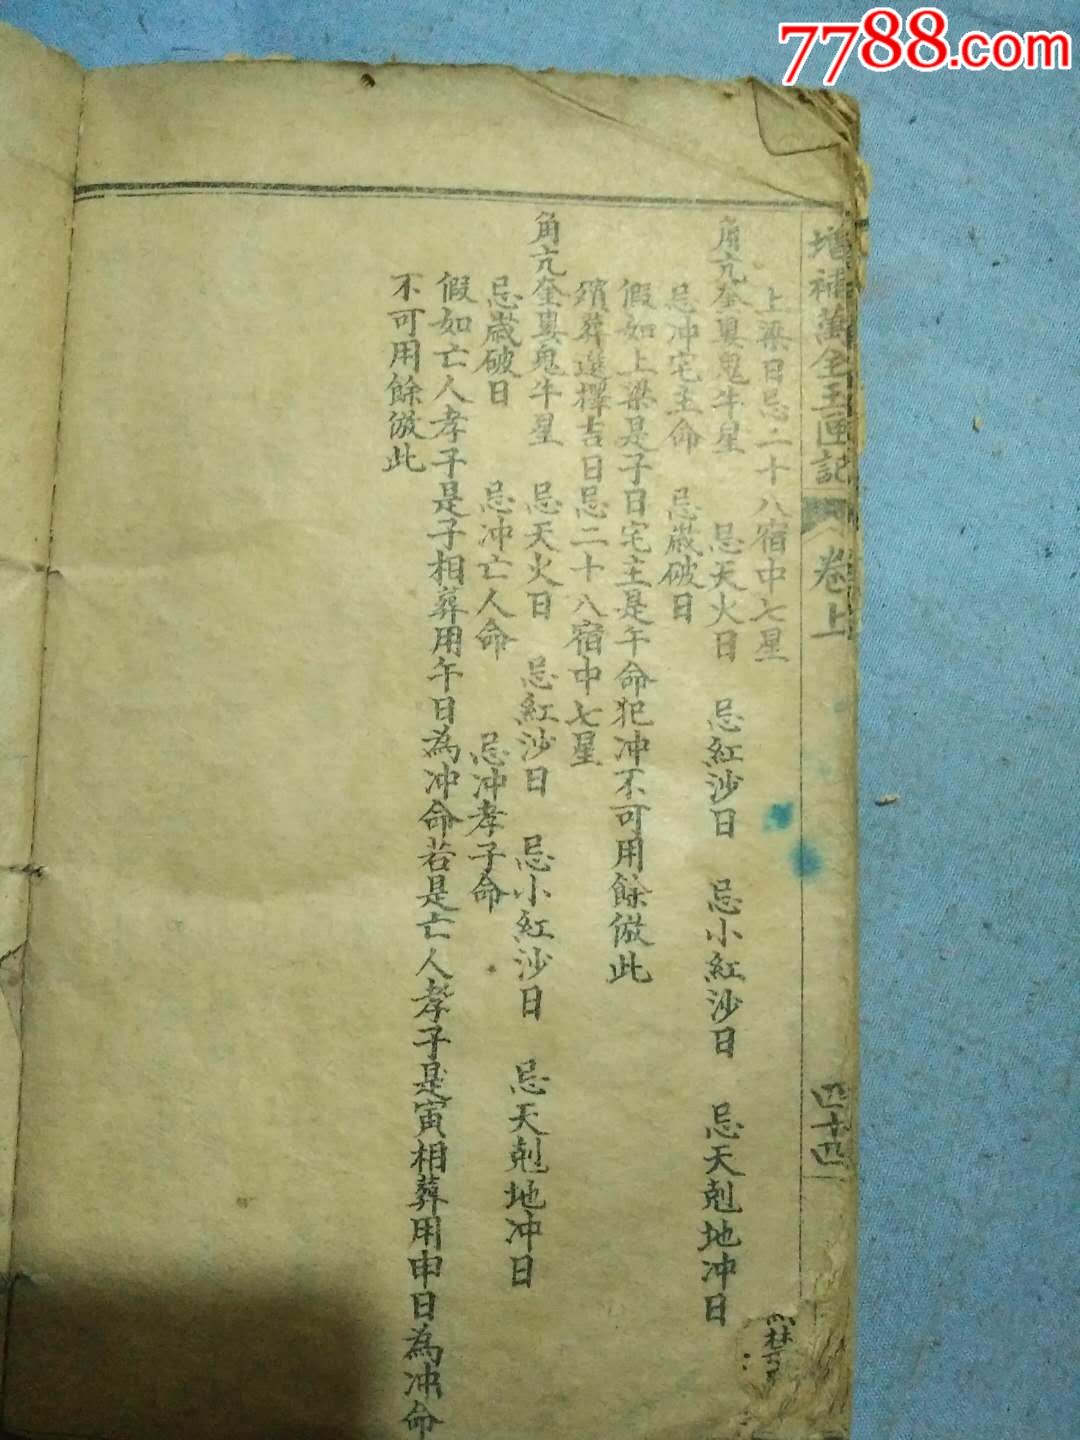 7788.com
增補萬全玉匣記 卷上 四十四
上梁日忌二十八宿中七星
角亢奎婁鬼牛星 忌天火日 忌紅沙日 忌小紅沙日 忌天剋地冲日
忌冲宅主命 忌歲破日
假如上梁是子日宅主是午命犯冲不可用餘倣此
殯葬選擇吉日忌二十八宿中七星
角亢奎婁鬼牛星 忌天火日 忌紅沙日 忌小紅沙日 忌天剋地冲日
忌歲破日 忌冲亡人命 忌冲孝子命
假如亡人孝子是子相葬用午日為冲命若是亡人孝子是寅相葬用申日為冲命
不可用餘倣此